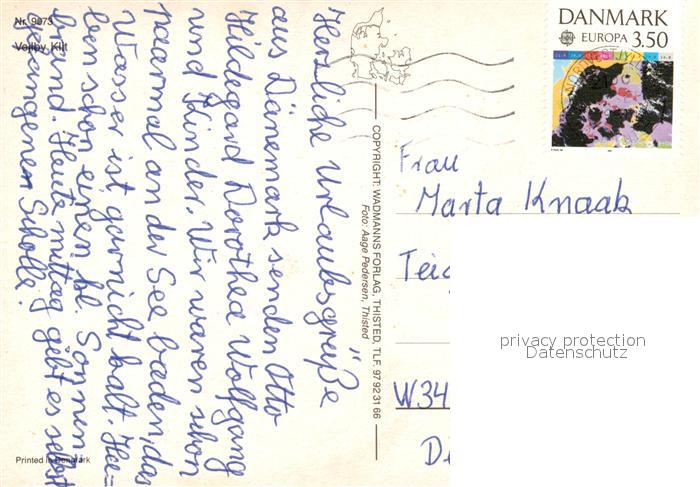 Nr. 9073
Vejlby Klit
Herzliche Urlaubsgrüße
aus Dänemark senden Otto
Hildegard Dorothea Wolfgang
und Kinder. Wir waren schon
paarmal an der See baden, das
Wasser ist garnicht kalt. Ha=
ben schon einen kl. Sonnen
brand. Heute mittag gibt es selbst
gefangenen Scholle!
Printed in Denmark
COPYRIGHT: WADMANNS FORLAG, THISTED, TLF. 97 92 31 66
Foto: Aage Pedersen, Thisted
DANMARK
EUROPA 3.50
Frau
Marta Knaak
Teic
W34
D
privacy protection
Datenschutz